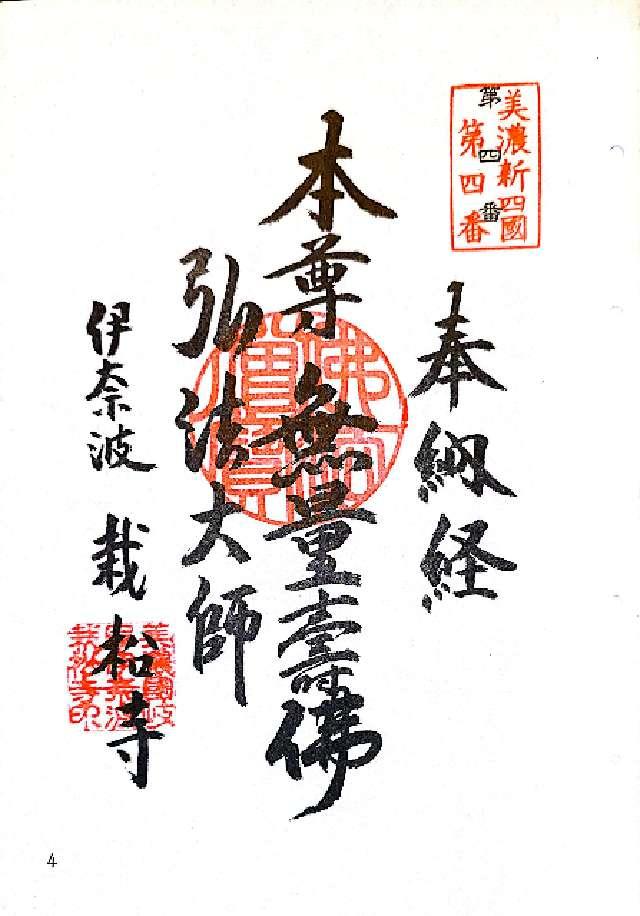 美濃新四國
第四番
第四番
奉納経
本尊無量壽佛
弘法大師
伊奈波 栽松寺
4